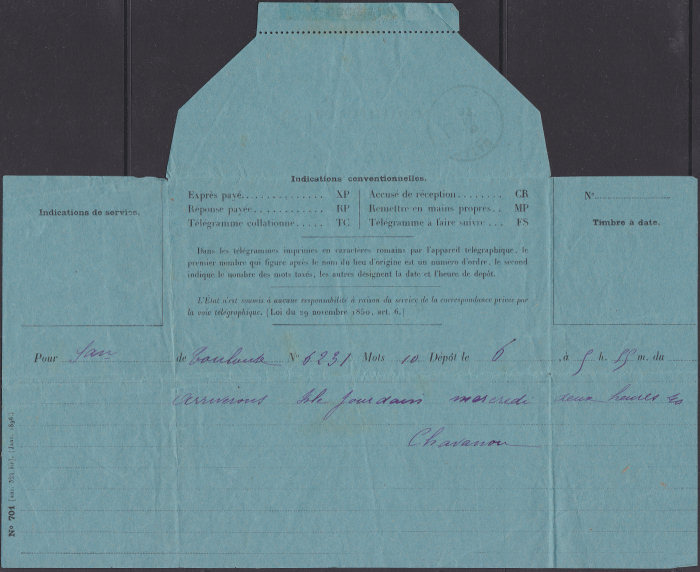 Indications conventionnelles.
Exprès payé............... XP
Réponse payée............ RP
Télégramme collationné...... TC
Accusé de réception........ CR
Remettre en mains propres.. MP
Télégramme à faire suivre... FS
Indications de service.
N°
Timbre à date.
Dans les télégrammes imprimés en caractères romains par l'appareil télégraphique, le
premier nombre qui figure après le nom du lieu d'origine est un numéro d'ordre, le second
indique le nombre des mots taxés, les autres désignent la date et l'heure de dépôt.
L'État n'est soumis à aucune responsabilité à raison du service de la correspondance privée par
la voie télégraphique. (Loi du 29 novembre 1850, art. 6.)
Pour de Toulouse N° 6231 Mots 10 Dépôt le 6, à 5 h. 55 m. du
arriverons Isle Jourdain mercredi deux heures
Chavanon
N° 701